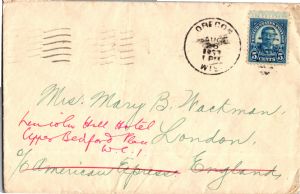 OREGON
AUG
1 PM
WIS.
5 CENTS 5
Mrs. Mary B. Wackman,
Lincoln Hall Hotel
Upper Bedford Place
London,
W.C.1
c/o American Express England,